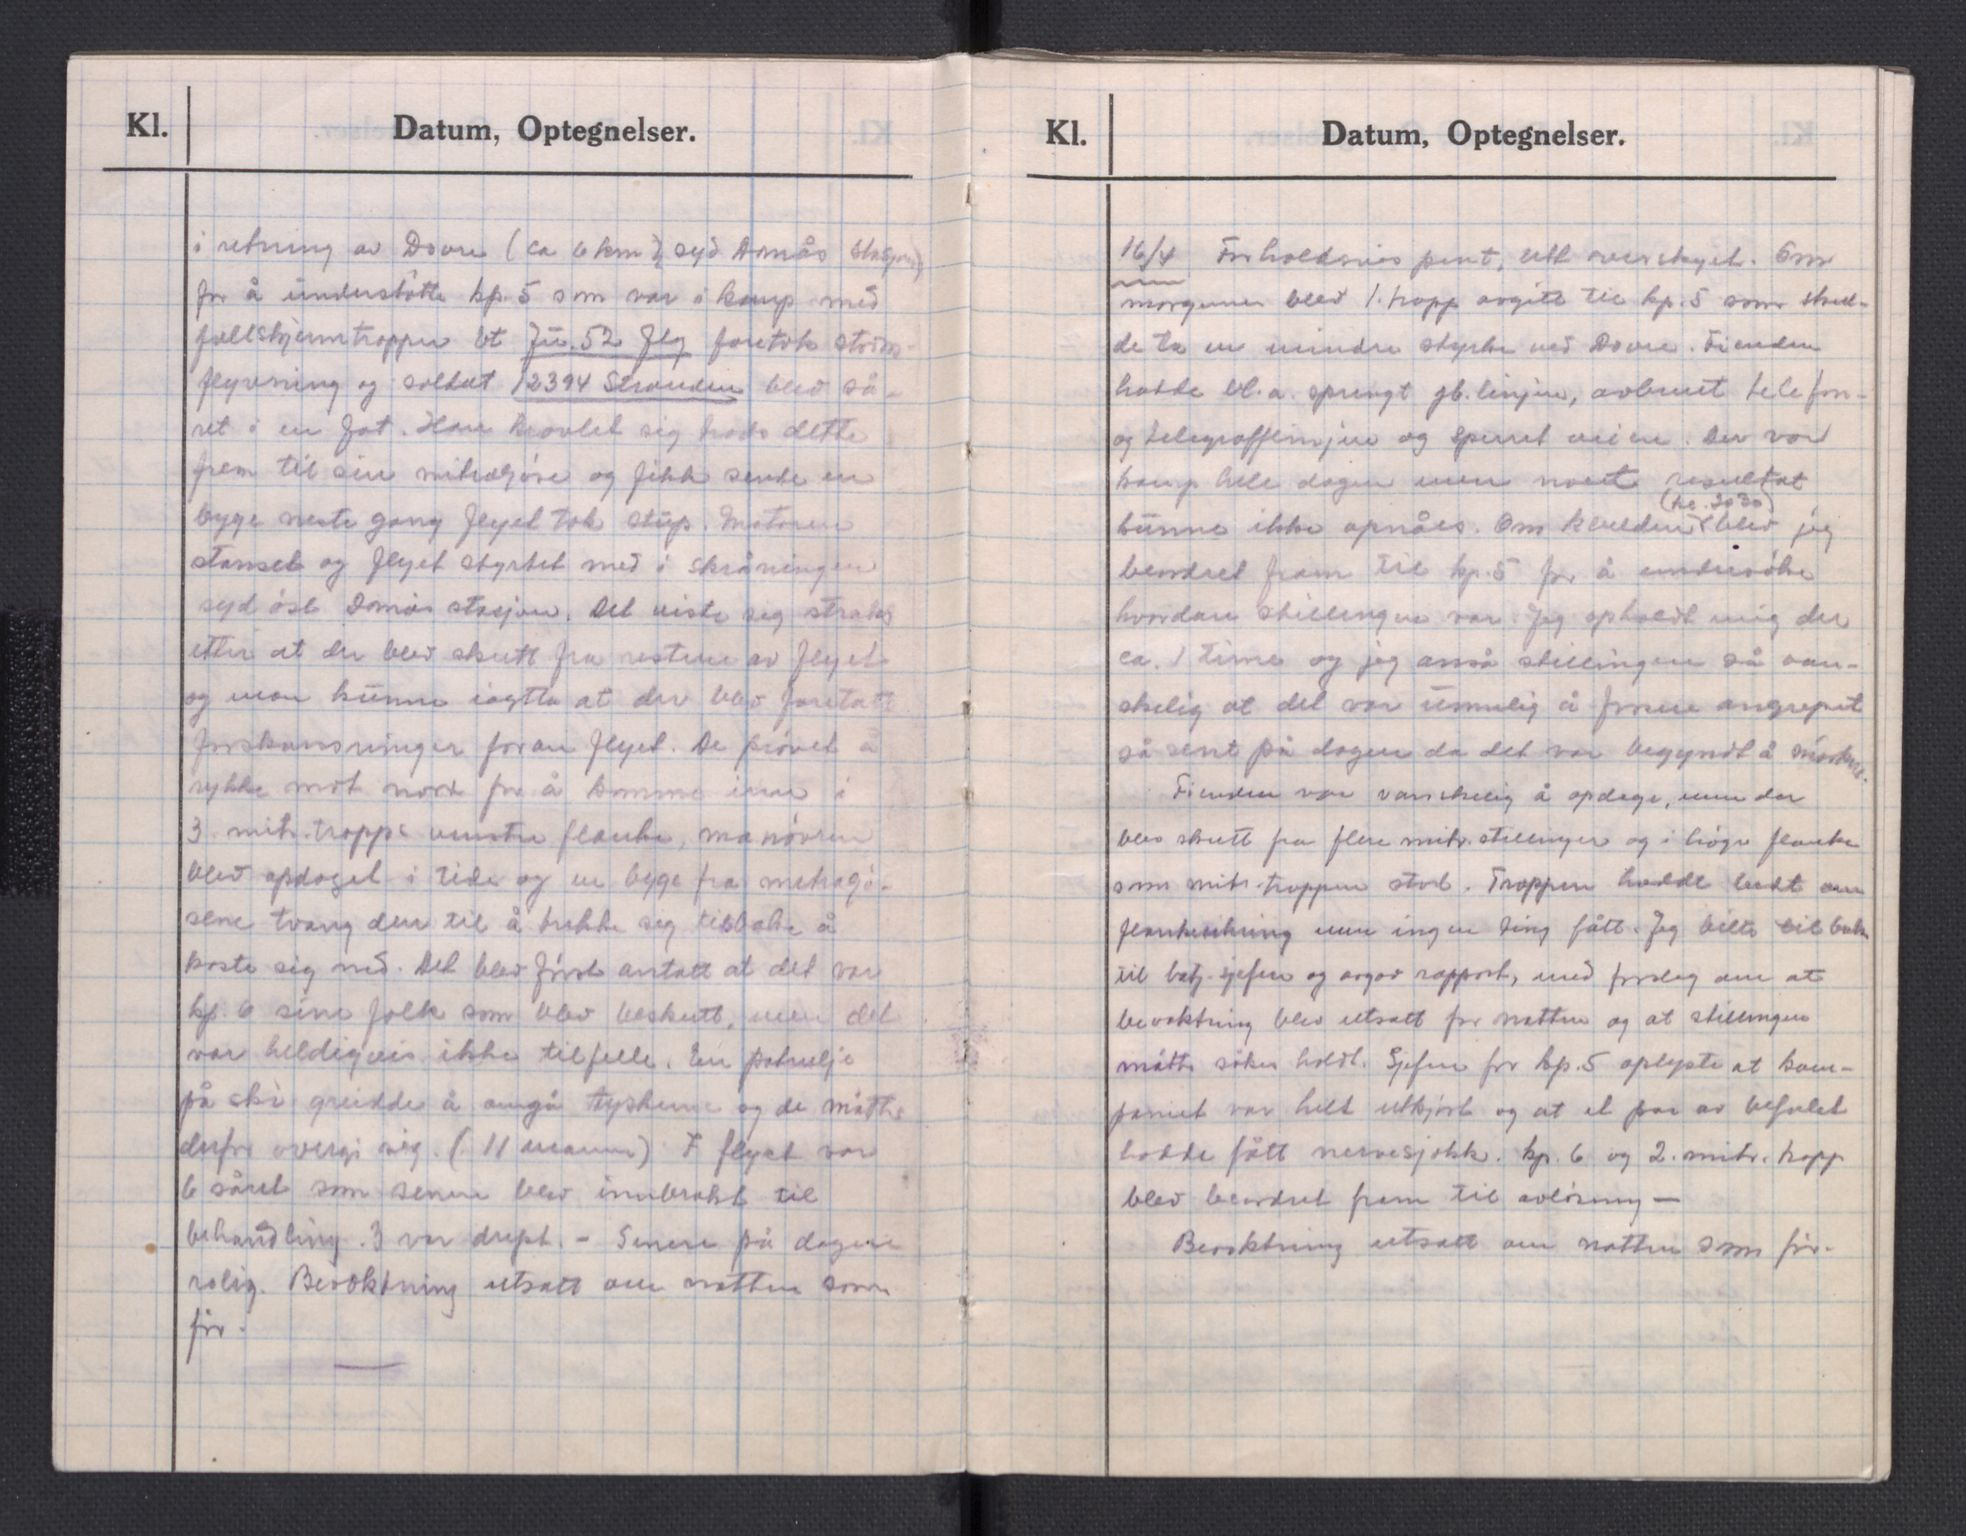 Kl. Datum, Optegnelser.
i retning av Dovre (ca 6 km syd Domås stasjon)
for å understøtte kp. 5 som var i kamp med
fallskjermtropper. Et Ju. 52 Fly foretok storm-
flyvning og soldat 12394 Stranden blev så-
ret i en fot. Han kravlet sig trods dette
frem til sin mitraljøse og fikk sende en
byge neste gang flyet tok stup. Motoren
stanset og flyet styrtet ned i skråningen
syd øst Domås stasjon. Det viste sig straks
etter at der blev skutt fra restene av flyet
og man kunne iagtta at der blev foretatt
forskansninger foran flyet. De prøvet å
rykke mot nord for å komme inn i
3. mitr. tropps venstre flanke, manøvren
blev opdaget i tide og en byge fra mitraljø-
sene tvang den til å trekke sig tilbake å
kaste sig ned. Det blev først antatt at det var
kp. 6 sine folk som blev beskutt, men det
var heldigvis ikke tilfelle. En patrulje
på ski greidde å omgå tyskerne og de måtte
derfor overgi sig. (11 mann) I flyet var
6 såret som senere blev innbrakt til
behandling. 3 var drept. - Senere på dagen
rolig. Bevoktning utsatt om natten som
før.
Kl. Datum, Optegnelser.
16/4 Forholdsvis pent, litt overskyet. Om
morgenen blev 1. tropp avgitt til kp. 5 som skul-
de ta en mindre styrke ved Dovre. Fienden
hadde bl. a. sprengt jb. linjen, avbrutt telefon-
og telegraflinjen og sperret veien. Der var
kamp hele dagen men noet resultat
(kl. 2030)
kunne ikke opnåes. Om kvelden blev jeg
beordret fram til kp. 5 for å undersøke
hvordan stillingen var. Jeg opholdt mig der
ca. 1 time og jeg anså stillingen så van-
skelig at det var umulig å forsere angrepet
så sent på dagen da det var begyndt å mørkne.
Fienden var vanskelig å opdage, men der
blev skutt fra flere mitr. stillinger og i høire flanke
som mitr. troppen stod. Troppen hadde bedt om
flankesikring men ingen ting fått. Jeg bilte tilbake
til batj. sjefen og avgav rapport, med forslag om at
bevoktning blev utsatt for natten og at stillingen
måtte søkes holdt. Sjefen for kp. 5 oplyste at kom-
paniet var helt utkjørt og at et par av befalet
hadde fått nervesjokk. kp. 6 og 2. mitr. tropp
blev beordret frem til avløsning —
Bevoktning utsatt om natten som før.